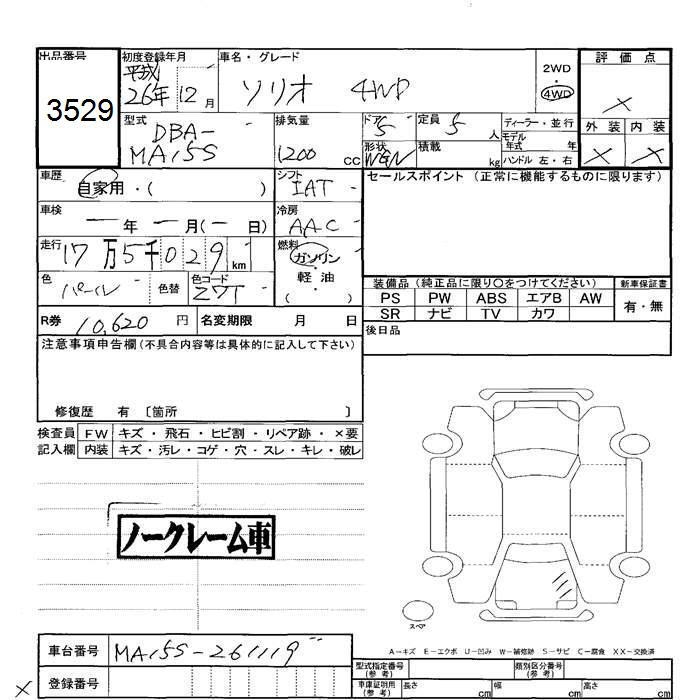 出品番号
3529
初度登録年月
平成
26年 12月
車名・グレード
ソリオ 4WD
2WD
4WD
評価点
×
外装 内装
× ×
型式
DBA-
MA15S
排気量
1200 cc
ドア 5
定員 5 人
形状 WGN
積載 kg
ディーラー・並行
モデル
年式 年
ハンドル 左・右
車歴
自家用・( )
シフト
IAT
セールスポイント (正常に機能するものに限ります)
車検
一年 一月(一日)
冷房
AAC
走行
17万5千029km
燃料
ガソリン・
軽油・
( )
色
パール
色替
色コード
Z7T
装備品 (純正品に限り〇をつけてください)
新車保証書
PS PW ABS エアB AW
有・無
SR ナビ TV カワ
R券 10,620 円
名変期限 月 日
後日品
注意事項申告欄(不具合内容等は具体的に記入して下さい)
修復歴 有 〔箇所 〕
検査員
記入欄
FW キズ・飛石・ヒビ割・リペア跡・×要
内装 キズ・汚レ・コゲ・穴・スレ・キレ・破レ
ノークレーム車
スペア
A－キズ E－エクボ U－凹み W－補修跡 S－サビ C－腐食 XX－交換済
車台番号
MA15S-261119
登録番号
×
型式指定番号
(参考)
類別区分番号
(参考)
車庫証明用
(参考)
長さ cm
幅 cm
高さ cm